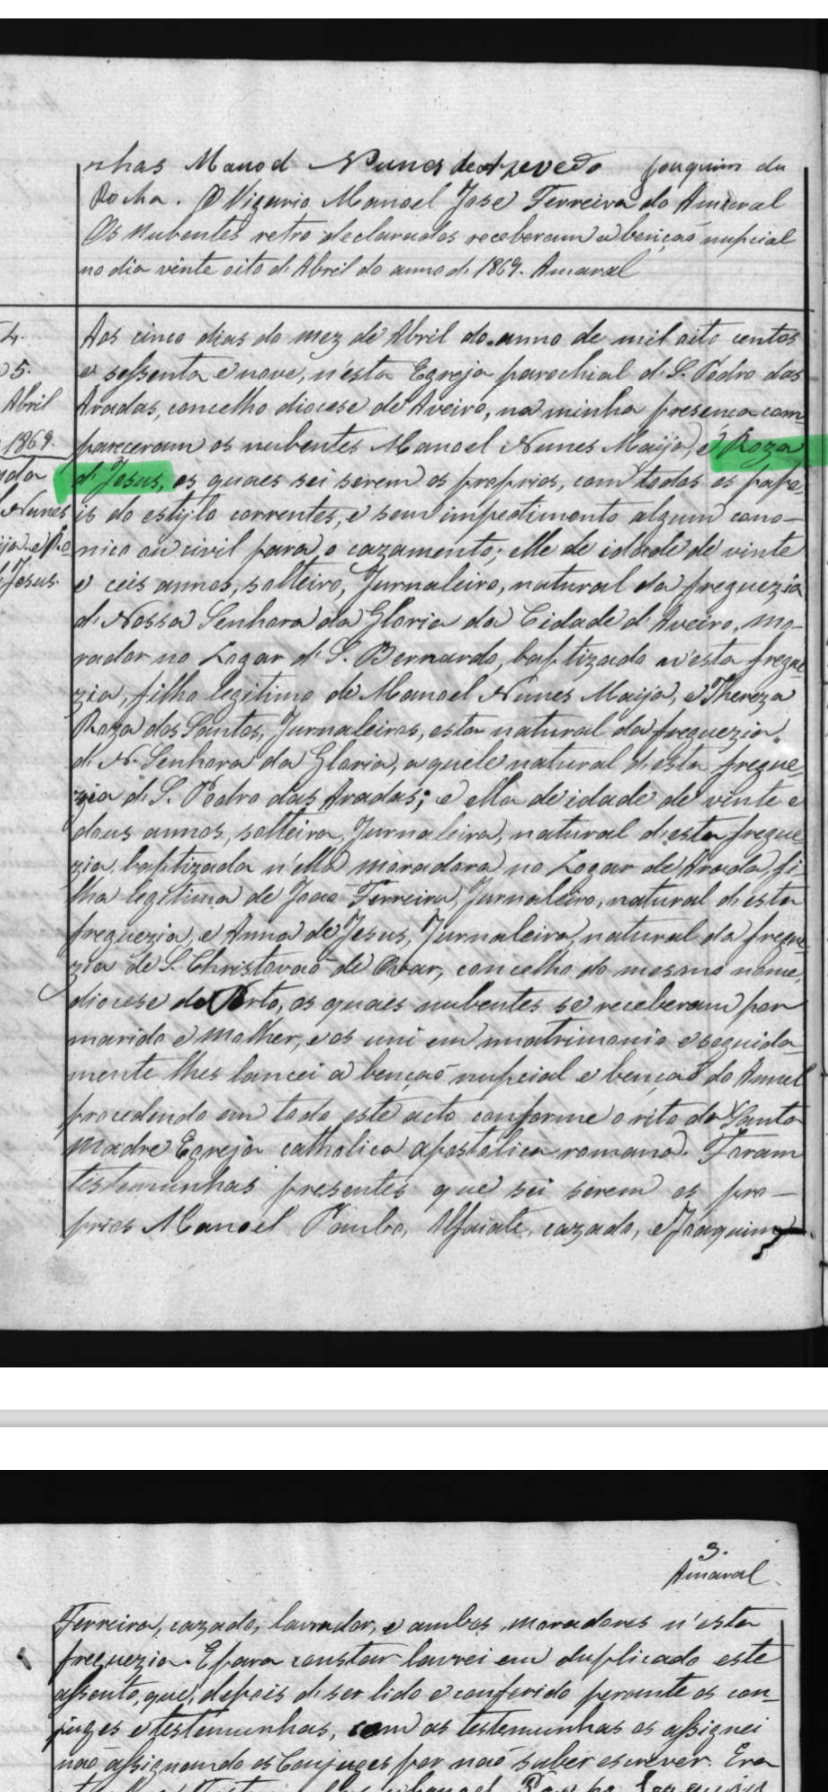 nhas Manoel Nunes de Azevedo Joaquim da
Rocha. O Vigario Manoel Jose Ferreira do Amaral
Os nubentes retro declarados receberam a bençaõ nupcial
no dia vinte oito d'Abril do anno d. 1869. Amaral
Aos cinco dias do mez de Abril do anno de mil oito centos
e sessenta e nove, n'esta Egreja parochial d. S. Pedro das
Aradas, concelho diocese de Aveiro, na minha presença com
pareceram os nubentes Manoel Nunes Maijo, e Roza
d. Jesus, os quaes sei serem os proprios, com todos os pape
is do estylo correntes, e sem impedimento algum cano-
nico ou civil para o cazamento; elle de idade de vinte
e ceis annos, solteiro, Jurnaleiro, natural da freguezia
d. Nossa Senhora da Gloria da Cidade d. Aveiro, mo-
rador no Logar d. S. Bernardo, baptizado n'esta fregue
zia, filho legitimo de Manoel Nunes Maijo, e Thereza
Roza dos Santos, Jurnaleiros, esta natural da freguezia
d. N. Senhora da Gloria, a quele natural d'esta fregue
zia d. S. Pedro das Aradas; e ella de idade de vinte e
dous annos, solteira, Jurnaleira, natural d'esta fregue
zia, baptizada n'ella moradora no Logar de Arada, fi
lha legitima de Joao Ferreira, Jurnaleiro, natural d'esta
freguezia, e Anna de Jesus, Jurnaleira, natural da fregue
zia de S. Christovaõ de Ovar, concelho do mesmo nome,
diocese do Porto, os quaes nubentes se receberam por
marido e mulher, e os uni em matrimonio e seguida-
mente lhes lancei a bençaõ nupcial e bençaõ do Annel
procedendo em todo este acto conforme o rito da Santa
Madre Egreja catholica apostolica romana. Foram
testemunhas presentes que sei serem os pro-
prios Manoel Pombo, Alfaiate, cazado, e Joaquim
4.
5.
Abril
1869.
Nunes
Jesus.
3.
Amaral
Ferreira, cazado, lavrador, e ambos moradores n'esta
freguezia. E para constar lavrei em duplicado este
assento, que, depois d. ser lido e conferido perante os con-
juges e testemunhas, com as testemunhas os assignei
naõ assignando os Conjuges por naõ saber escrever. Era